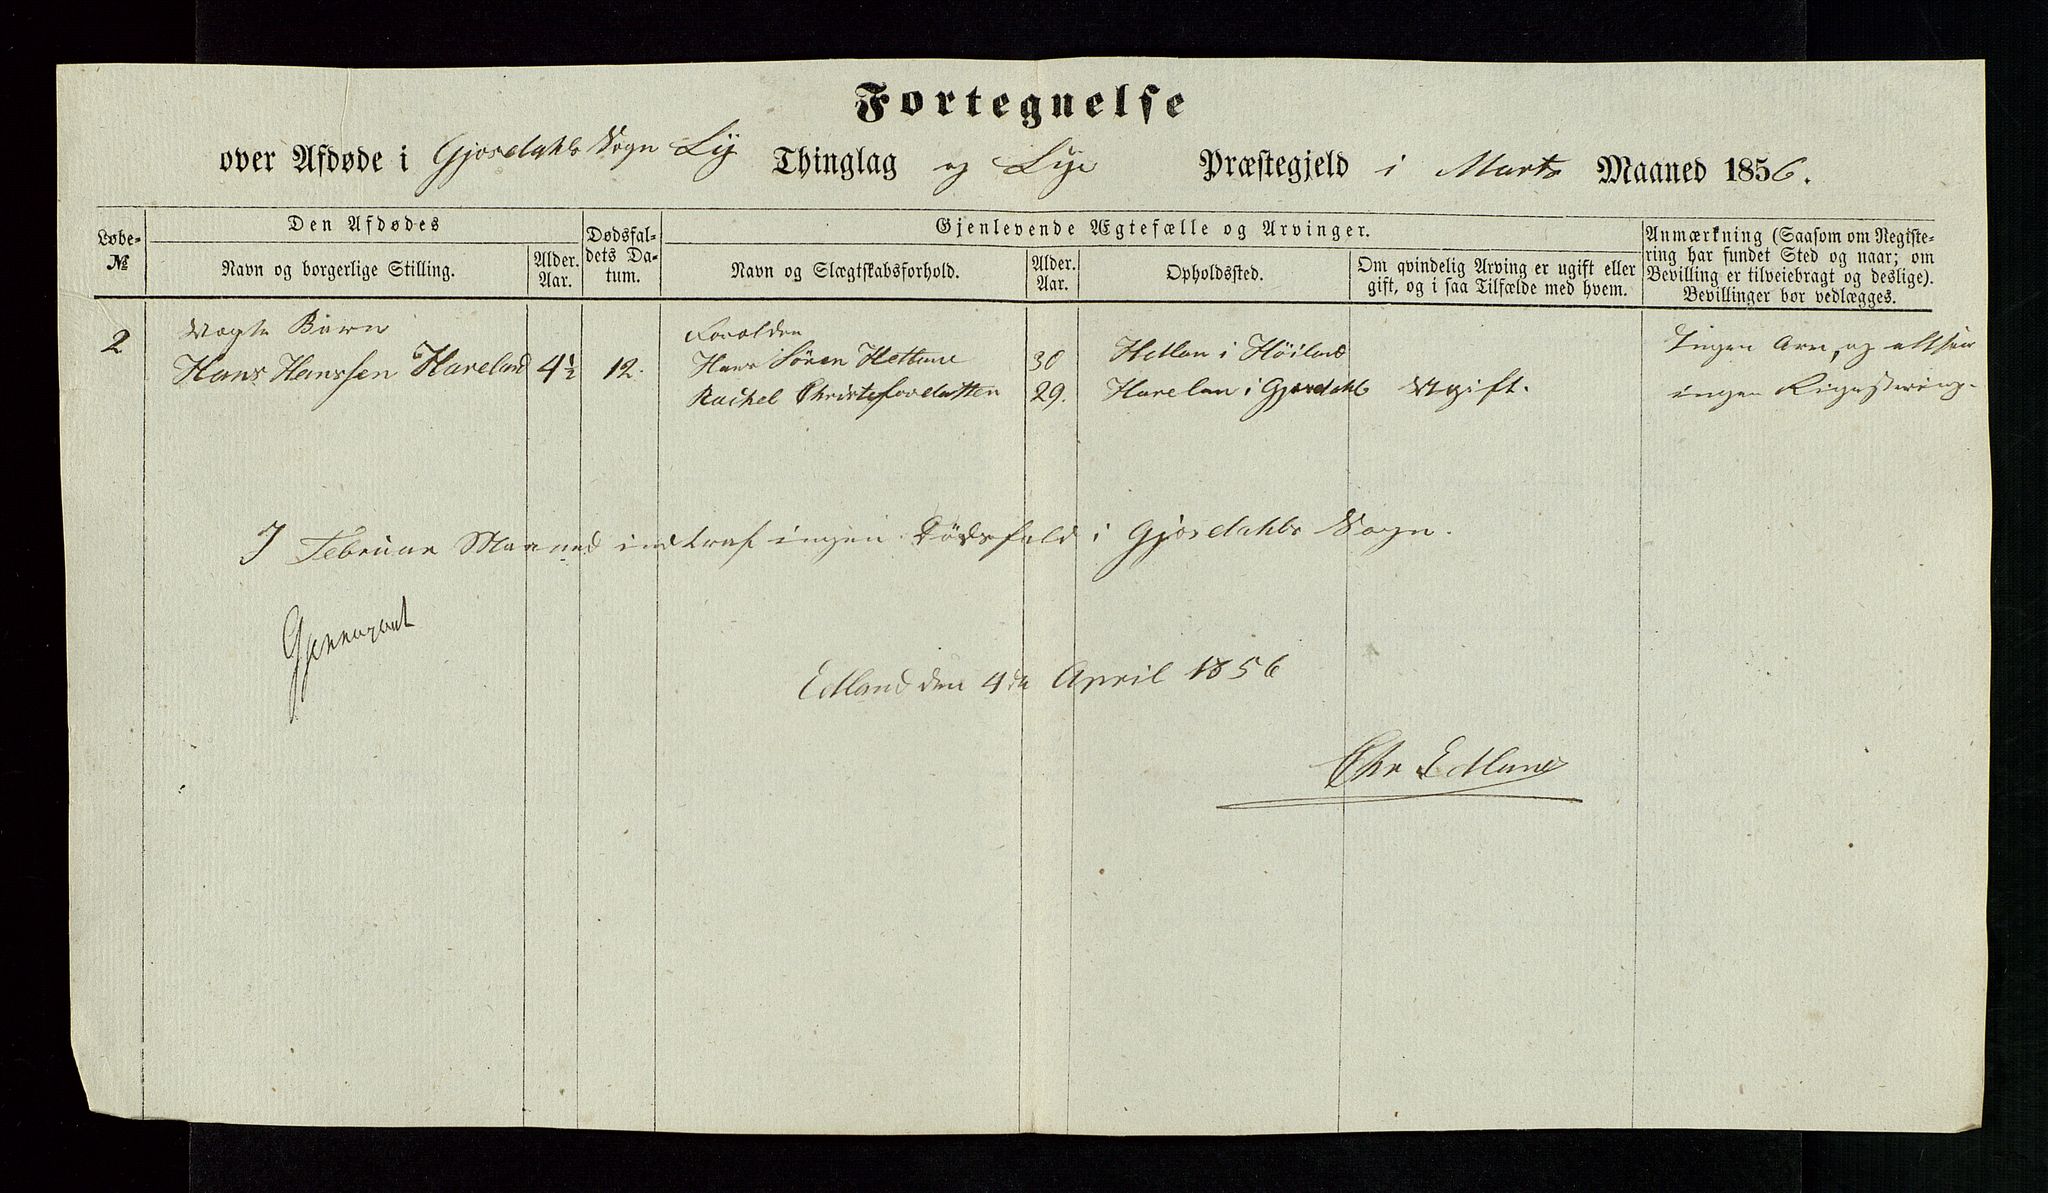 Fortegnelse
over Afdøde i Gjosdahls Sogn Ly Thinglag og Lye Præstegjeld i Marts Maaned 1856.
Løbe-
№
Den Afdødes
Navn og borgerlige Stilling.
Alder.
Aar.
Dødsfal-
dets Da-
tum.
Gjenlevende Ægtefælle og Arvinger.
Navn og Slægtskabsforhold.
Alder.
Aar.
Opholdssted.
Om qvindelig Arving er ugift eller
gift, og i saa Tilfælde med hvem.
Anmærkning (Saasom om Registe-
ring har fundet Sted og naar; om
Bevilling er tilveiebragt og deslige).
Bevillinger bør vedlægges.
2
Uægte Barn
Hans Hanssen Hareland 4½ 12.
Forældre
Hans Sören Hetland 30 Hetlan i Höiland
Rachel Christofersdatter 29. Harelan i Gjosdahl Ugift.
Ingen Arv, og altsaa
ingen Registrering.
I Februar Maaned indtraf ingen Dödsfald i Gjosdahls Sogn.
Edland den 4de April 1856
Chr Edland